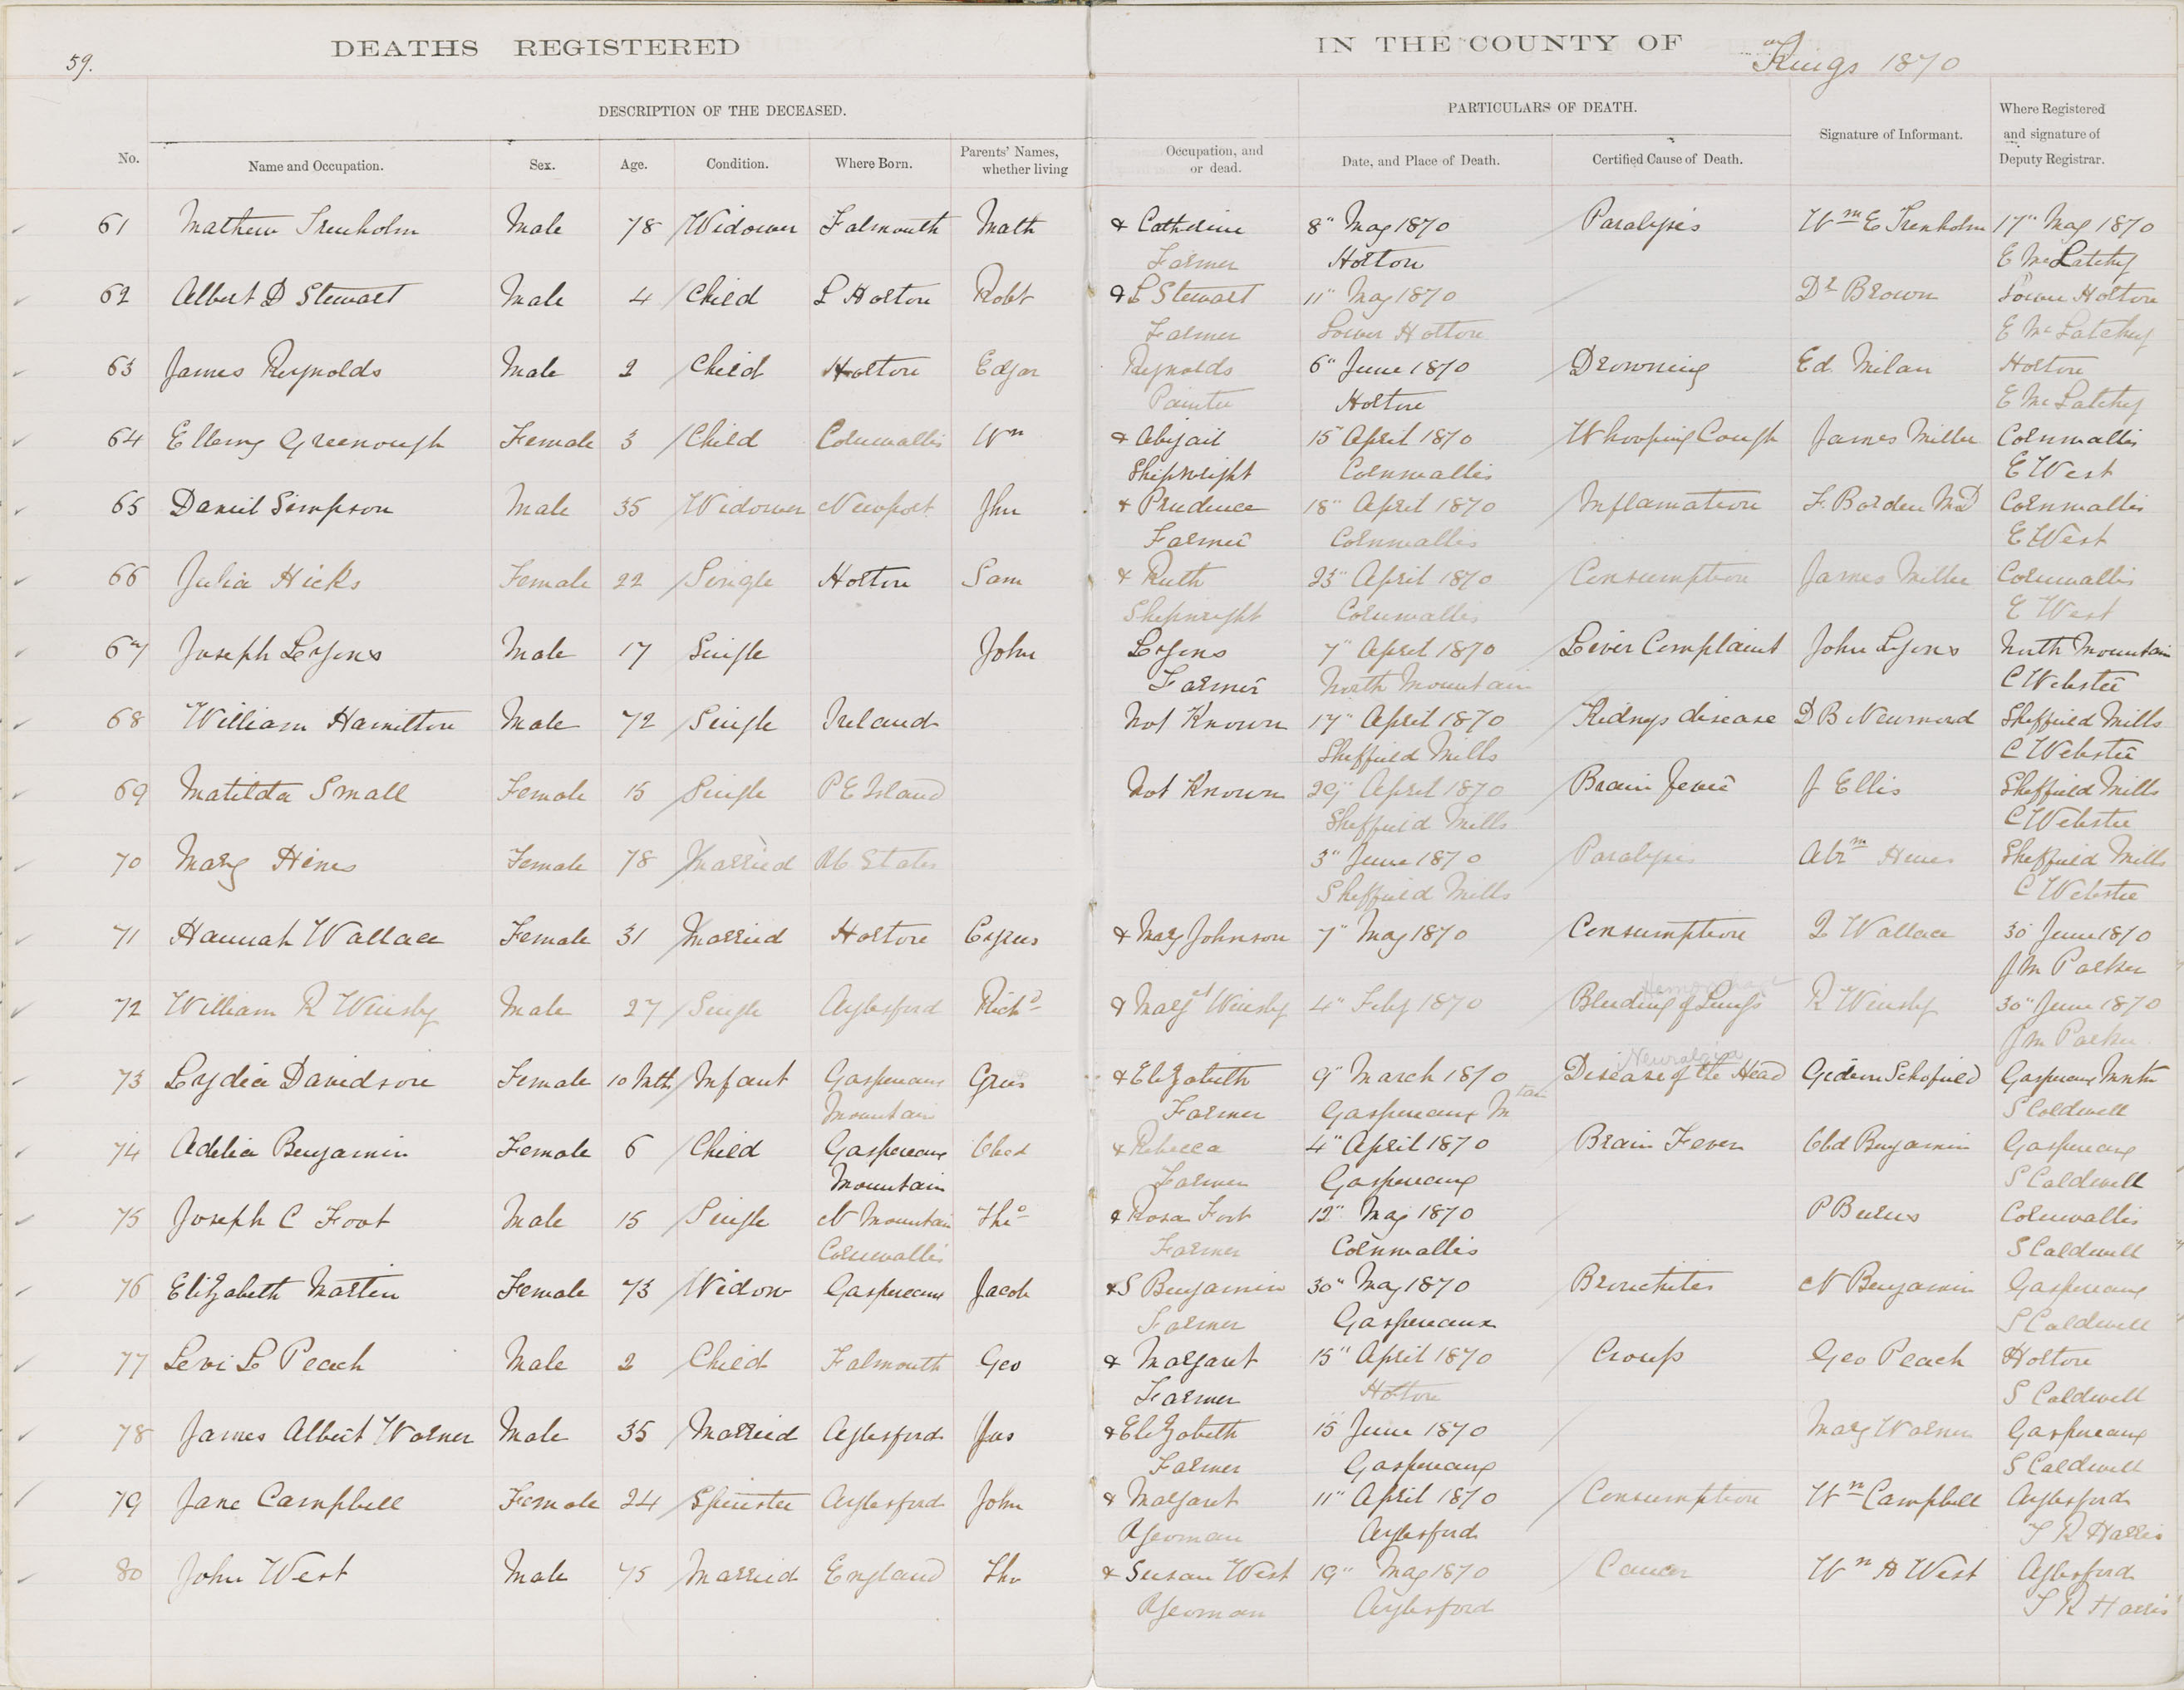 59.
DEATHS REGISTERED IN THE COUNTY OF Kings 1870
DESCRIPTION OF THE DECEASED. PARTICULARS OF DEATH. Signature of Informant. Where Registered and signature of Deputy Registrar.
No. Name and Occupation. Sex. Age. Condition. Where Born. Parents' Names, whether living Occupation, and or dead. Date, and Place of Death. Certified Cause of Death.
61 Mathew Trenholm Male 78 Widower Falmouth Math & Catherine 8" May 1870 Paralysis Wm E Trenholm 17" May 1870
Farmer Horton E McLatchy
62 Albert D Stewart Male 4 Child L Horton Robt & L Stewart 11" May 1870 Dr Brown Lower Horton
Farmer Lower Horton E McLatchy
63 James Reynolds Male 2 Child Horton Edgar Reynolds 6" June 1870 Drowning Ed. Milan Horton
Painter Horton E McLatchy
64 Greenough Female 3 Child Cornwallis Wm & Abigail 15" April 1870 Whooping Cough James Miller Cornwallis
Shipwright Cornwallis E West
65 Daniel Simpson Male 35 Widower Newport Jhn & Prudence 18" April 1870 Inflamation F. Borden MD Cornwallis
Farmer Cornwallis E West
66 Julia Hicks Female 22 Single Horton Sam & Ruth 23" April 1870 Consumption James Miller Cornwallis
Shipwright Cornwallis E West
67 Joseph Lyons Male 17 Single John Lyons 7" April 1870 Liver Complaint John Lyons North Mountain
Farmer North Mountain C Webster
68 William Hamilton Male 72 Single Ireland Not Known 17" April 1870 Kidneys disease D B Newcomb Sheffield Mills
Sheffield Mills C Webster
69 Matilda Small Female 15 Single P E Island Not Known 29" April 1870 Brain fever J Ellis Sheffield Mills
Sheffield Mills C Webster
70 Mary Hines Female 78 Married States 3" June 1870 Paralysis Abrm Hines Sheffield Mills
Sheffield Mills C Webster
71 Hannah Wallace Female 31 Married Horton Cyrus & Mary Johnson 7" May 1870 Consumption Wallace 30 June 1870
J M Parker
Hemorrhage
72 William R Winsby Male 27 Single Aylesford Richd & Margt Winsby 4" Feby 1870 Bleeding of Lungs R Winsby 30" June 1870
J M Parker
Neuralgia
73 Lydia Davidson Female 10 Mth Infant Gaspereaux & Elizabeth 9" March 1870 Disease of the Head Gideon Schofield Gaspereaux Mntn
Mountain Farmer Gaspereaux Mtan S Coldwell
74 Adelia Benjamin Female 6 Child Gaspereaux Obed & Rebecca 4" April 1870 Brain Fever Obd Benjamin Gaspereaux
Mountain Farmer Gaspereaux S Coldwell
75 Joseph C Foot Male 15 Single N Mountain Tho & Rosa Foot 12" May 1870 P Burns Cornwallis
Cornwallis Farmer Cornwallis S Caldwell
76 Elizabeth Martin Female 73 Widow Gaspereaux Jacob & S Benjamin 30" May 1870 Bronchites N Benjamin Gaspereaux
Farmer Gaspereaux S Caldwell
77 Levi L Peach Male 2 Child Falmouth Geo & Margaret 15" April 1870 Croup Geo Peach Horton
Farmer Horton S Caldwell
78 James Albert Warner Male 35 Married Aylesford Jas & Elizabeth 15 June 1870 Mary Warner Gaspereaux
Farmer Gaspereaux S Caldwell
79 Jane Campbell Female 24 Spinster Aylesford John & Margaret 11" April 1870 Consumption Wm Campbell Aylesford
Yeoman Aylesford T R Harris
80 John West Male 75 Married England Tho & Susan West 19" May 1870 Cancer Wm A West Aylesford
Yeoman Aylesford T R Harris